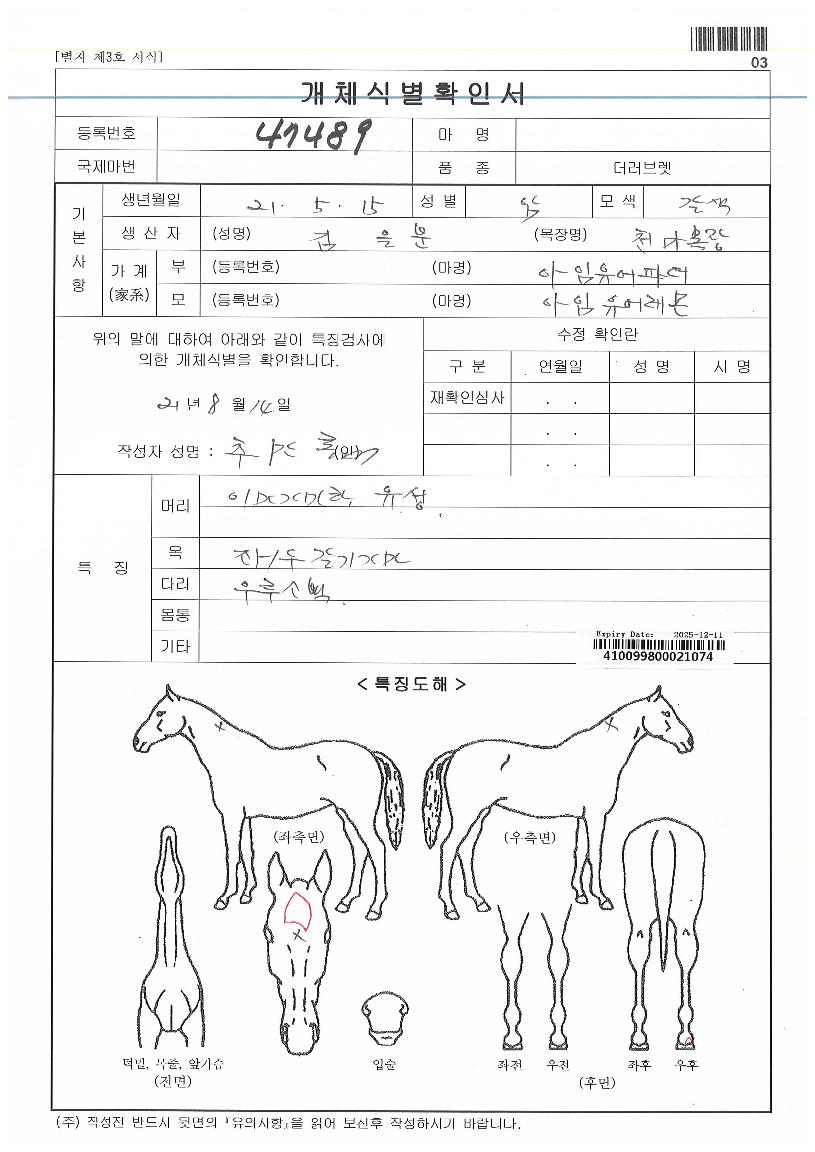 [별지 제3호 서식]
03
개체식별확인서
등록번호 47489 마 명
국제마번 품 종 더러브렛
기본사항 생년월일 21. 5. 15 성 별 암 모 색 갈색
생 산 자 (성명) 김 을 분 (목장명) 천마목장
가 계 (家系) 부 (등록번호) (마명) 아임유어파더
모 (등록번호) (마명) 아임유어레몬
위의 말에 대하여 아래와 같이 특징검사에
의한 개체식별을 확인합니다.
21년 8월 14일
작성자 성명 : (인)
수정 확인란
구 분 연월일 성 명 시 명
재확인심사 . .
. .
. .
특 징
머리 유성
목
다리
몸통
기타
Expiry Date: 2025-12-11
410099800021074
< 특징도해 >
(좌측면) (우측면)
턱밑, 목줄, 앞가슴 입술 좌전 우전 좌후 우후
(전면) (후면)
(주) 작성전 반드시 뒷면의 『유의사항』을 읽어 보신후 작성하시기 바랍니다.